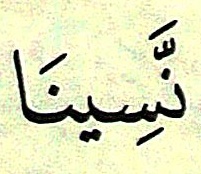 نَّسِينَا